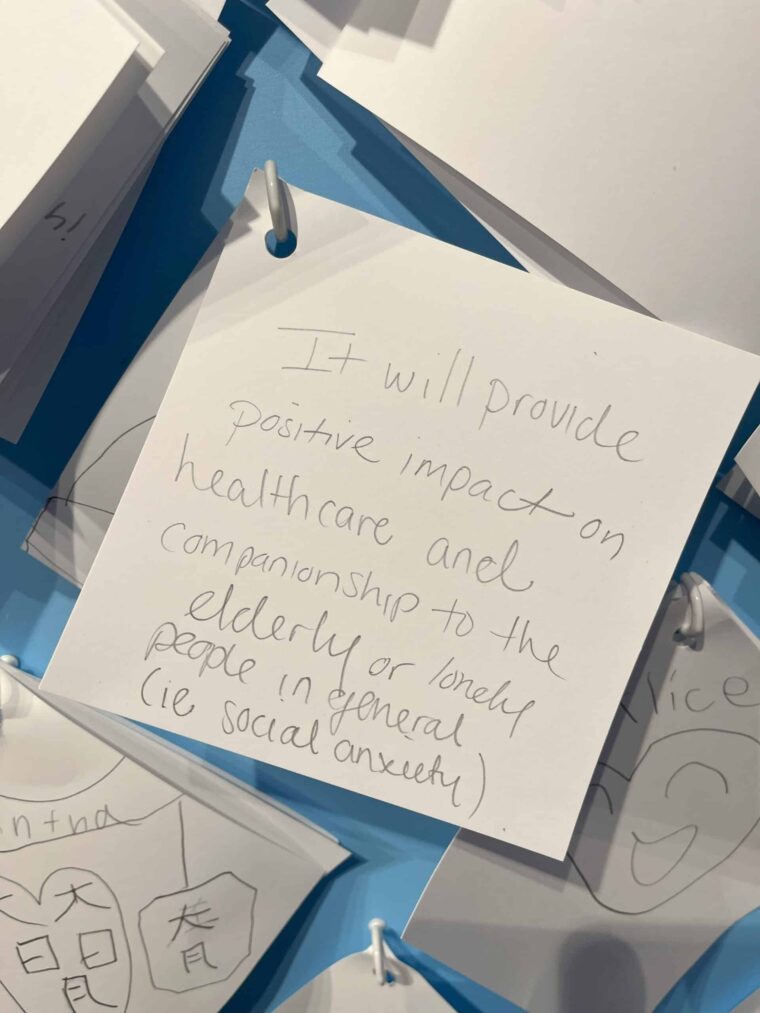 It will provide
positive impact on
healthcare and
companionship to the
elderly or lonely
people in general
(ie social anxiety)
hi